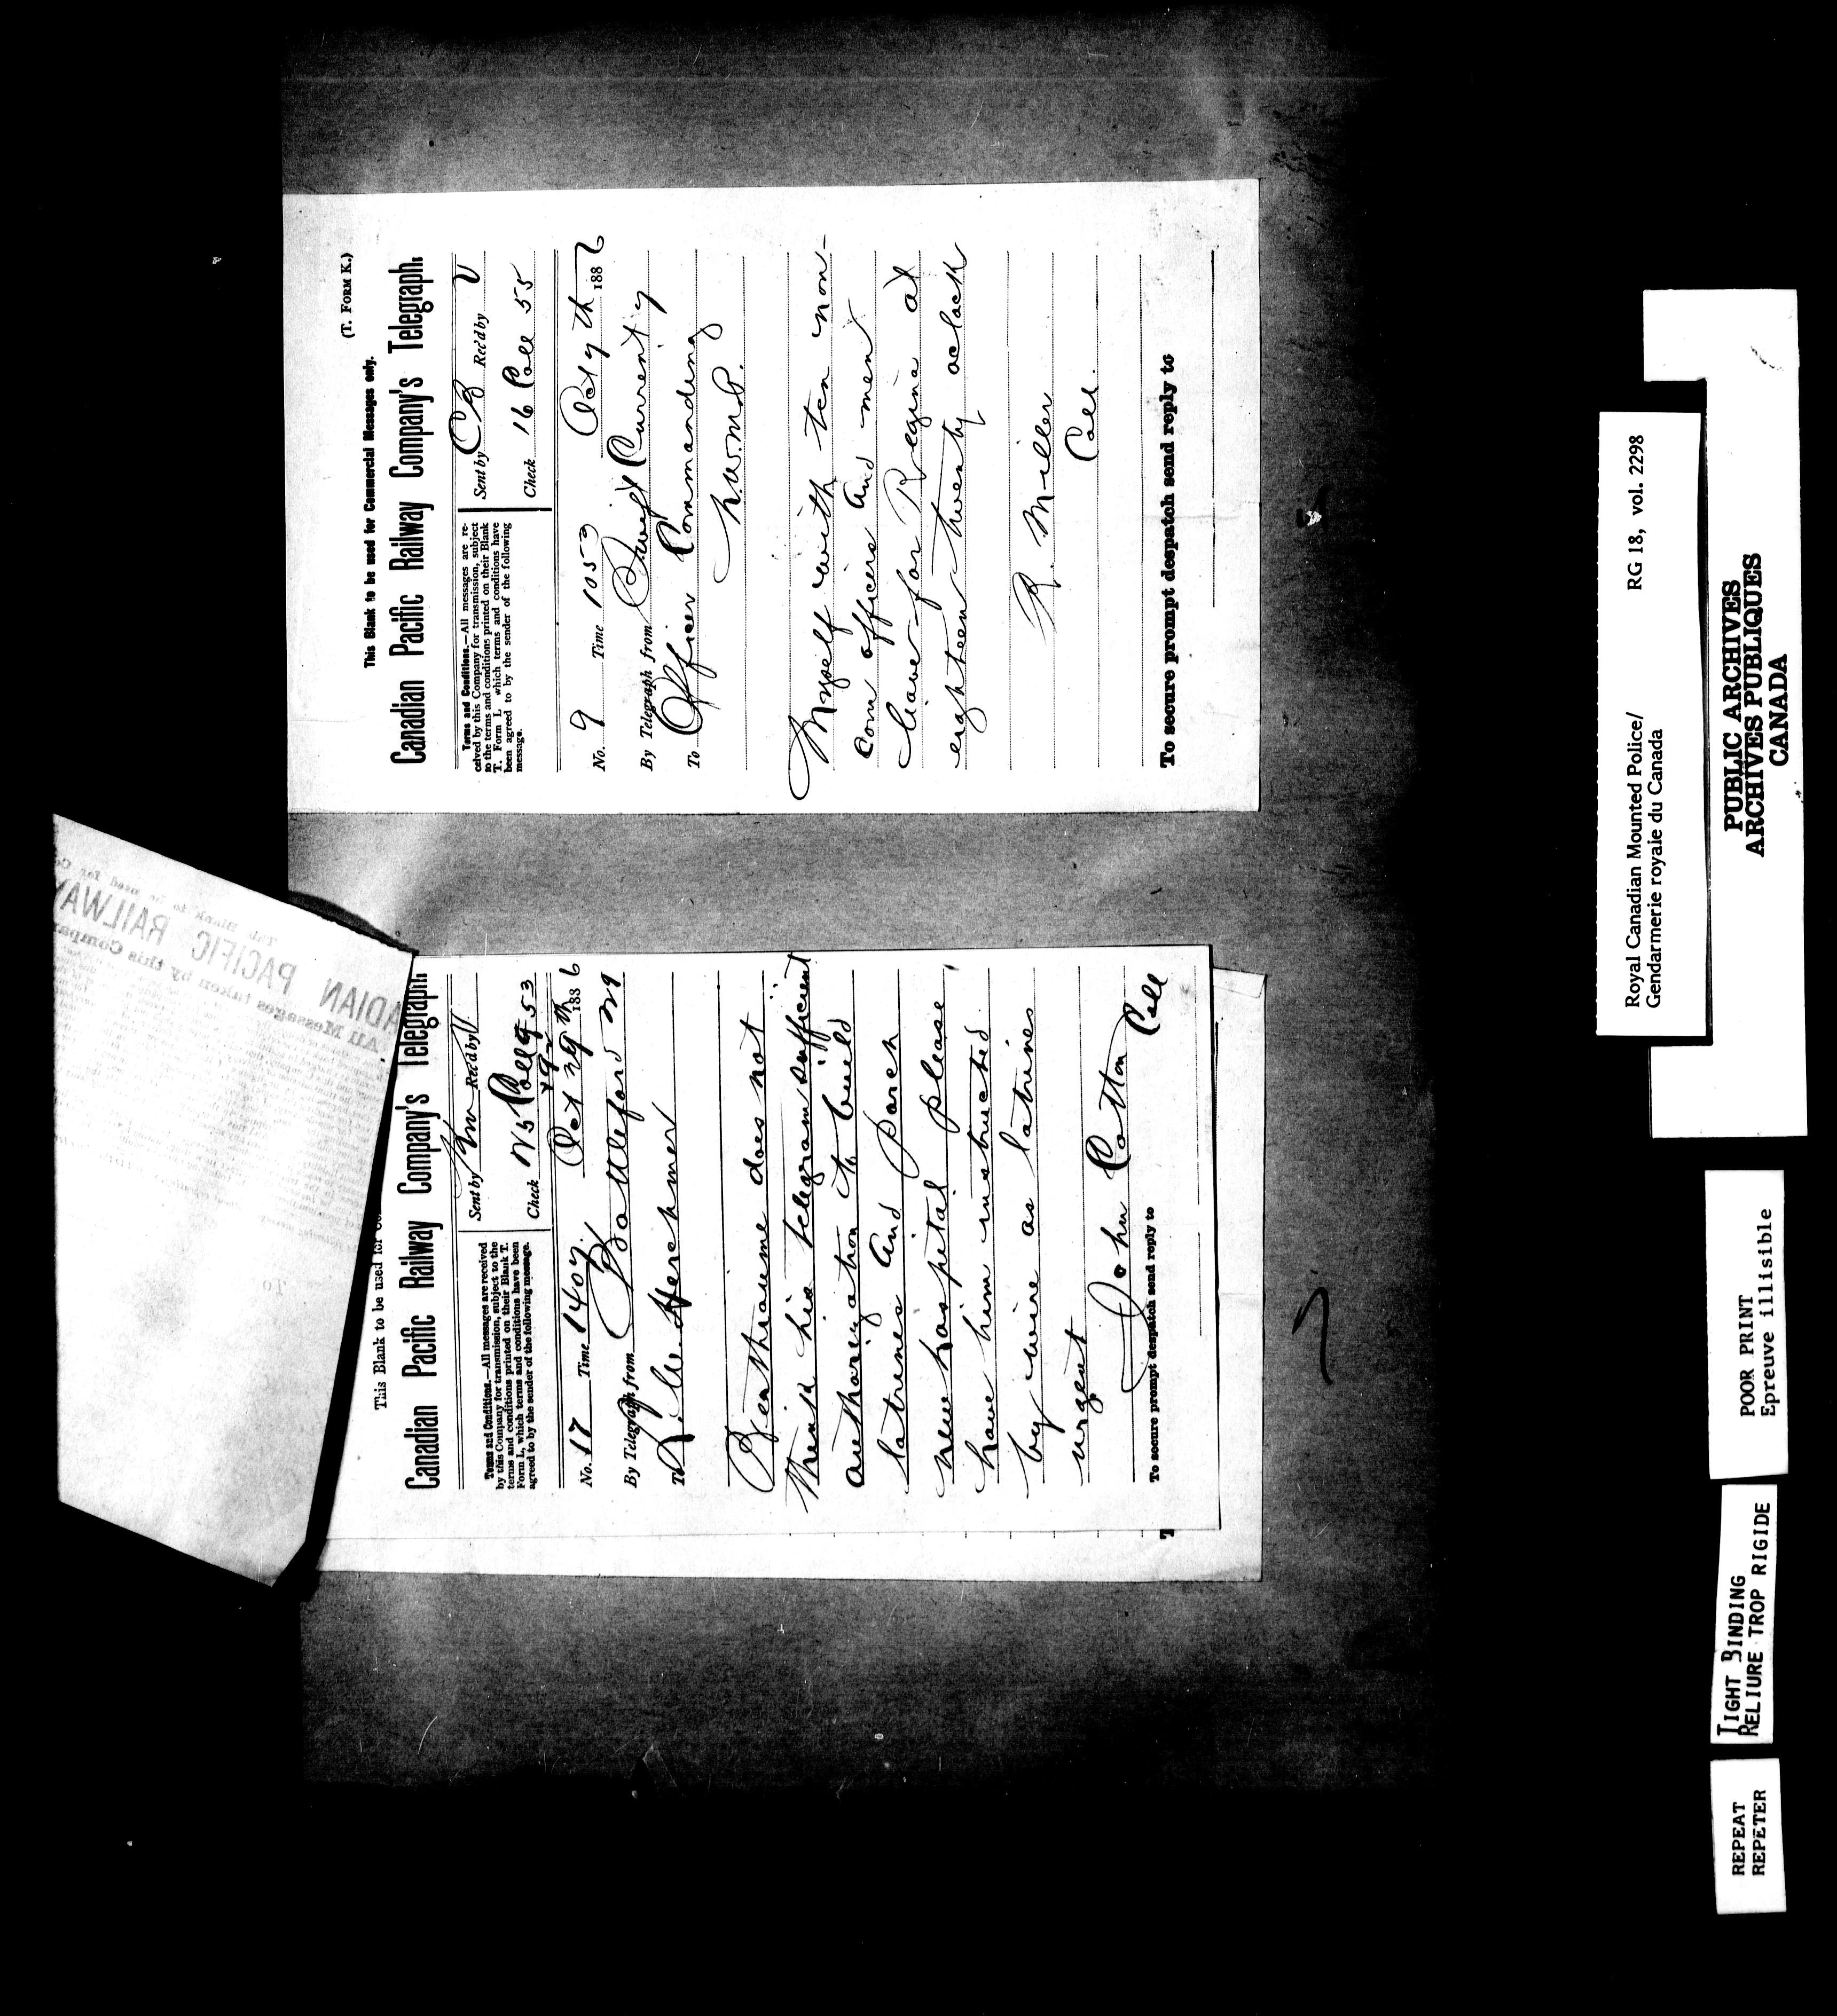 This Blank to be used for Co
Canadian Pacific Railway Company's Telegraph.
Terms and Conditions.—All messages are received
by this Company for transmission, subject to the
terms and conditions printed on their Blank T.
Form L, which terms and conditions have been
agreed to by the sender of the following message.
Sent by Rec'd by
Check Coll 53
No. 17 Time 1407 Oct 29th 1886
By Telegraph from Battleford 29
To Herchmer
does not
think his telegram sufficient
authorization to build
latrines and porch
new hospital please
have him instructed
by wire as latrines
urgent
John Cotton
Coll
To secure prompt despatch send reply to
(T. FORM K.)
This Blank to be used for Commercial Messages only.
Canadian Pacific Railway Company's Telegraph.
Terms and Conditions.—All messages are re-
ceived by this Company for transmission, subject
to the terms and conditions printed on their Blank
T. Form L, which terms and conditions have
been agreed to by the sender of the following
message.
Sent by Rec'd by V
Check 16 Coll 55
No. 9 Time 1053 Oct 7th 1886
By Telegraph from Swift Current 7
To Officer Commanding
N.W.M.P.
Myself with ten non-
com officers and men
leave for Regina at
eighteen twenty oclock
R. Miller
Coll.
To secure prompt despatch send reply to
ADIAN PACIFIC RAILWAY
All Messages taken by this Compa
To
Royal Canadian Mounted Police/ RG 18, vol. 2298
Gendarmerie royale du Canada
PUBLIC ARCHIVES
ARCHIVES PUBLIQUES
CANADA
POOR PRINT
Epreuve illisible
TIGHT BINDING
RELIURE TROP RIGIDE
REPEAT
REPETER